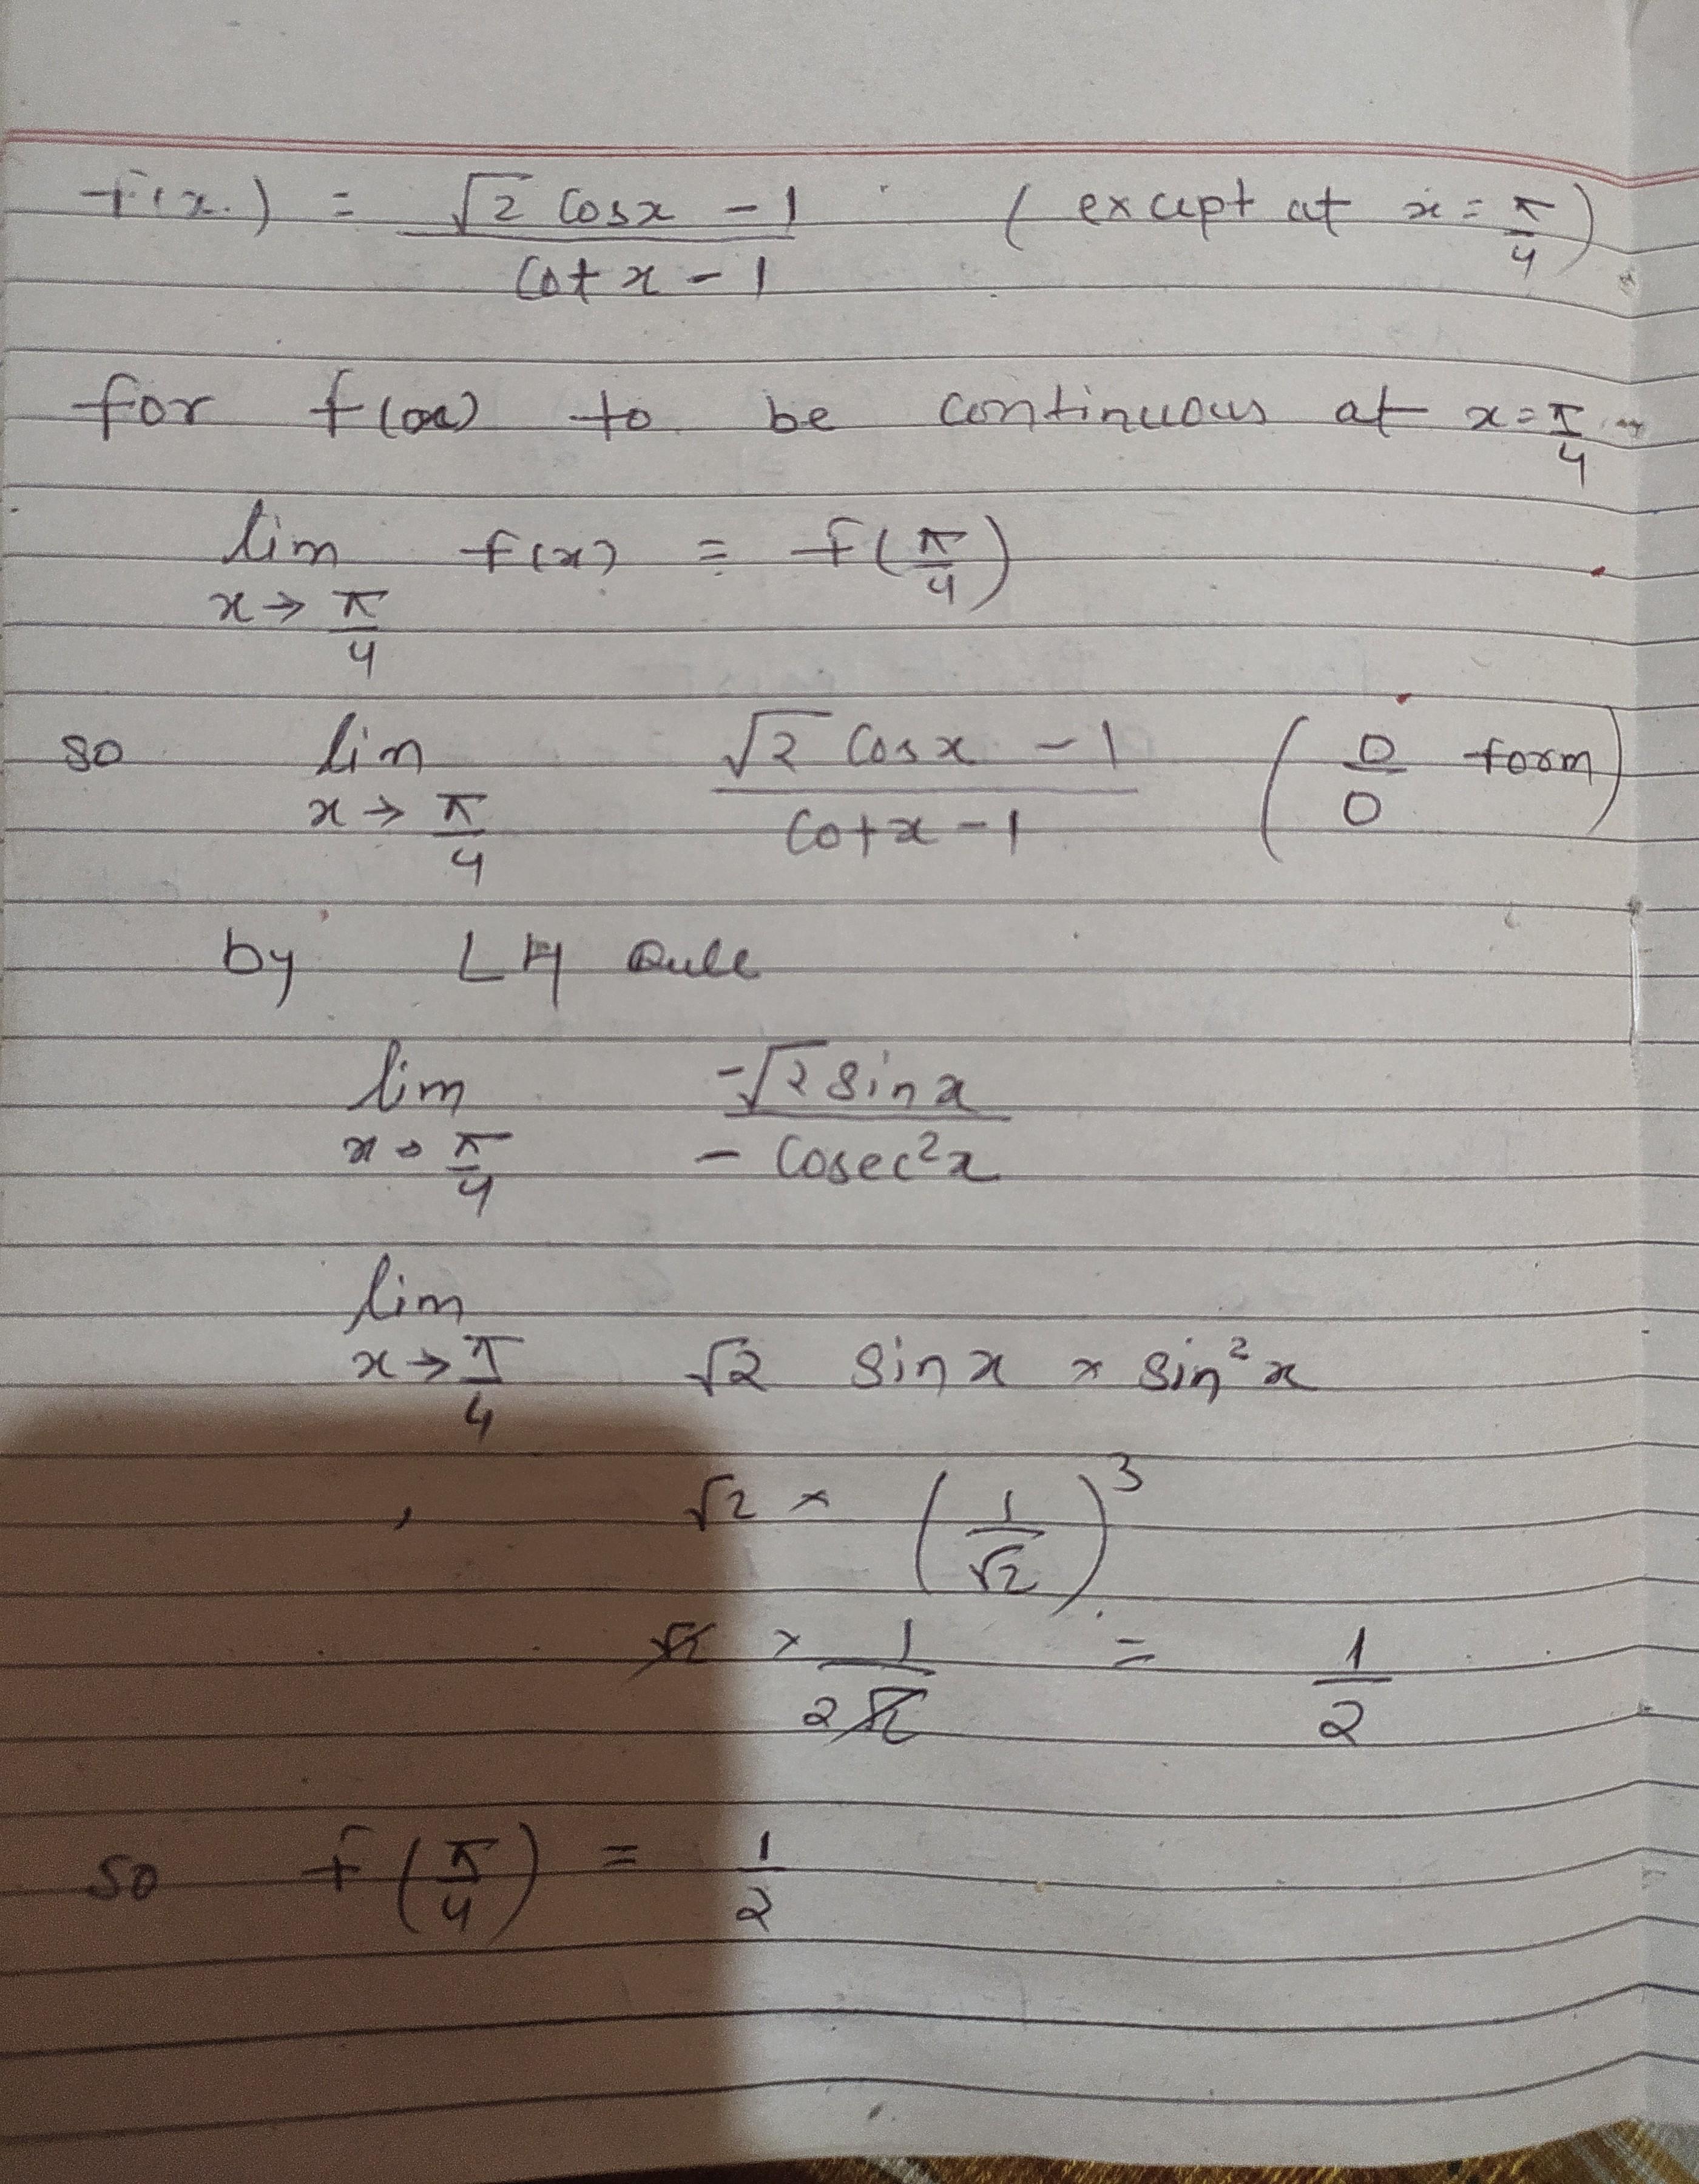 f(x) = √2 cosx - 1 / cot x - 1 (except at x = π/4)
for f(x) to be continuous at x = π/4
lim x→π/4 f(x) = f(π/4)
so lim x→π/4 √2 cosx - 1 / cotx - 1 (0/0 form)
by LH Rule
lim x→π/4 -√2 sinx / - cosec²x
lim x→π/4 √2 sinx × sin²x
√2 × (1/√2)³
√2 × 1/2√2 = 1/2
so f(π/4) = 1/2